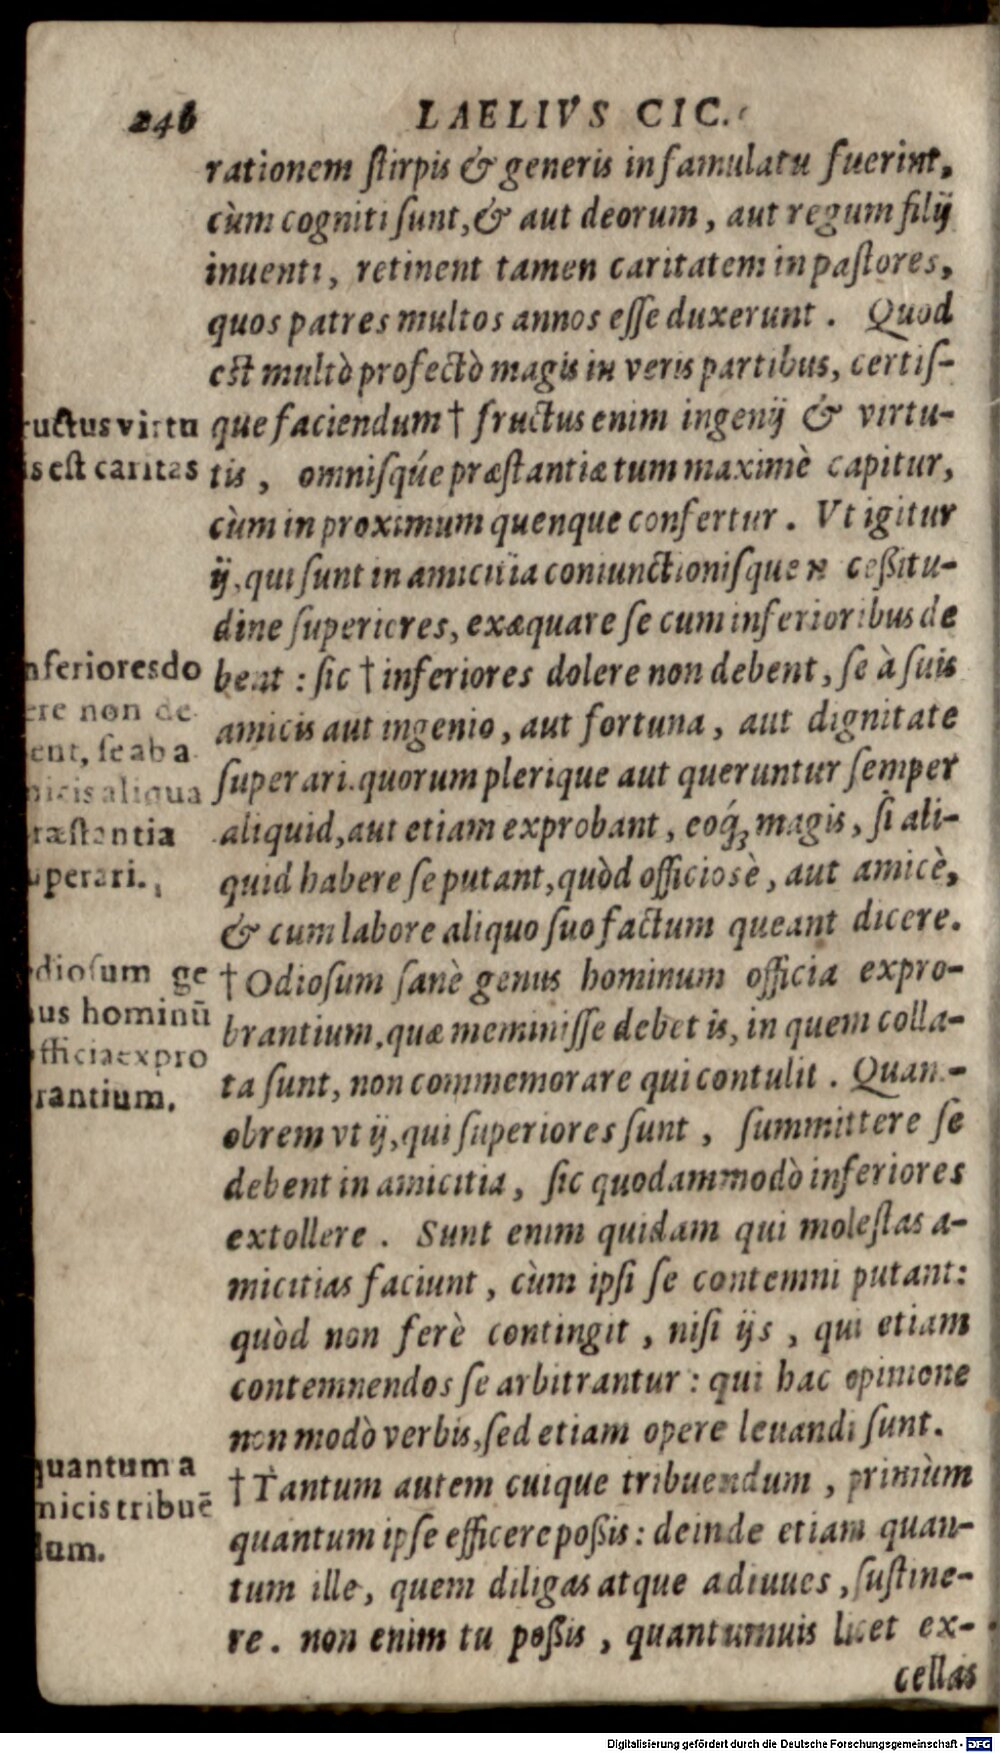 246
LAELIVS CIC.
rationem ſtirpis & generis in famulatu fuerint,
cùm cogniti ſunt, & aut deorum, aut regum filij
inuenti, retinent tamen caritatem in paſtores,
quos patres multos annos eſſe duxerunt. Quod
est multò profectò magis in veris partibus, certiſ-
que faciendum † fructus enim ingenij & virtu-
tis, omniſqúe præſtantiæ tum maximè capitur,
cùm in proximum quenque confertur. Vt igitur
ij, qui ſunt in amicitia coniunctioniſque neceßitu-
dine ſuperiores, exæquare ſe cum inferioribus de
bent : ſic † inferiores dolere non debent, ſe à ſuis
amicis aut ingenio, aut fortuna, aut dignitate
ſuperari. quorum plerique aut queruntur ſemper
aliquid, aut etiam exprobant, eoq́; magis, ſi ali-
quid habere ſe putant, quòd officiosè, aut amicè,
& cum labore aliquo ſuo factum queant dicere.
† Odioſum ſanè genus hominum officia expro-
brantium, quæ meminiſſe debet is, in quem colla-
ta ſunt, non commemorare qui contulit. Quam-
obrem vt ij, qui ſuperiores ſunt, ſummittere ſe
debent in amicitia, ſic quodammodò inferiores
extollere. Sunt enim quidam qui moleſtas a-
micitias faciunt, cùm ipſi ſe contemni putant:
quòd non ferè contingit, niſi ijs, qui etiam
contemnendos ſe arbitrantur : qui hac opinione
non modò verbis, ſed etiam opere leuandi ſunt.
† Tantum autem cuique tribuendum, primùm
quantum ipſe efficere poßis : deinde etiam quan-
tum ille, quem diligas atque adiuues, ſuſtine-
re. non enim tu poßis, quantumuis licet ex-
cellas
ructus virtu
is eſt caritas
nferiores do
ere non de
ent, ſe ab a
micis aliqua
ræſtantia
uperari.
dioſum ge
us hominū
fficia expro
rantium.
quantum a
micis tribuē
dum.
Digitalisierung gefördert durch die Deutsche Forschungsgemeinschaft - DFG